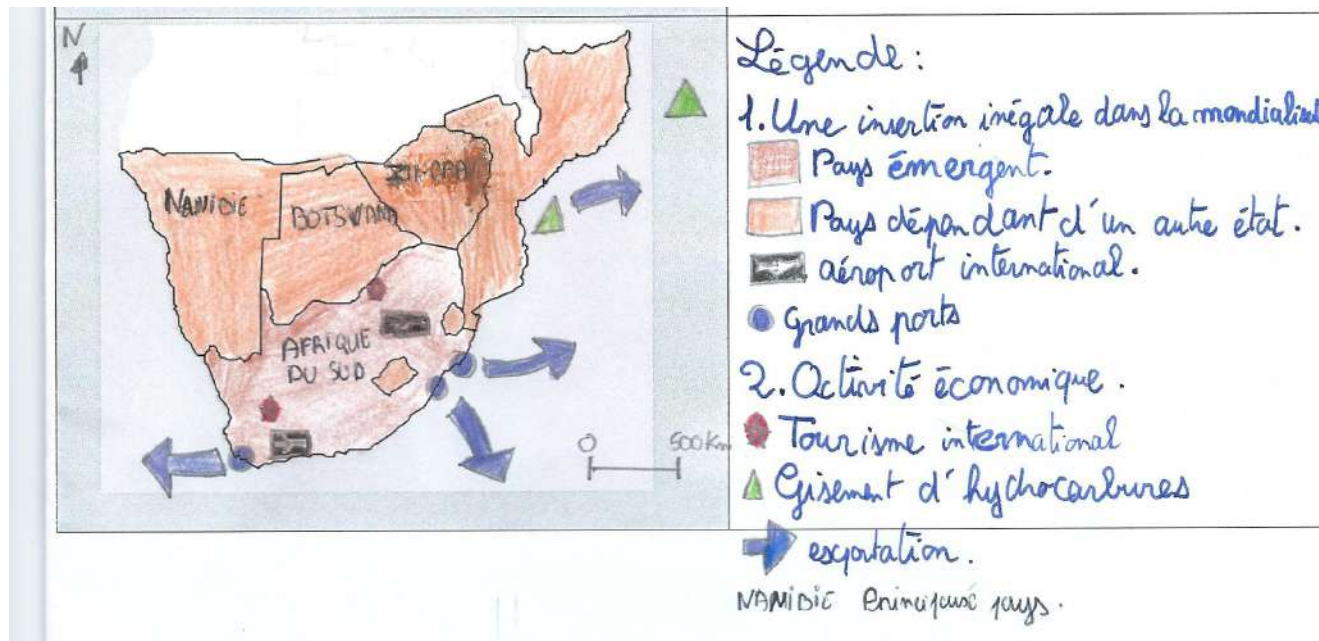 N
NAMIBIE
BOTSWANA
AFRIQUE
DU SUD
0 500Km
Légende :
1. Une insertion inégale dans la mondialisat
Pays émergent.
Pays dépendant d'un autre état.
aéroport international.
Grands ports
2. Activité économique.
Tourisme international
Gisement d'hydrocarbures
exportation.
NAMIBIE Principaux pays.